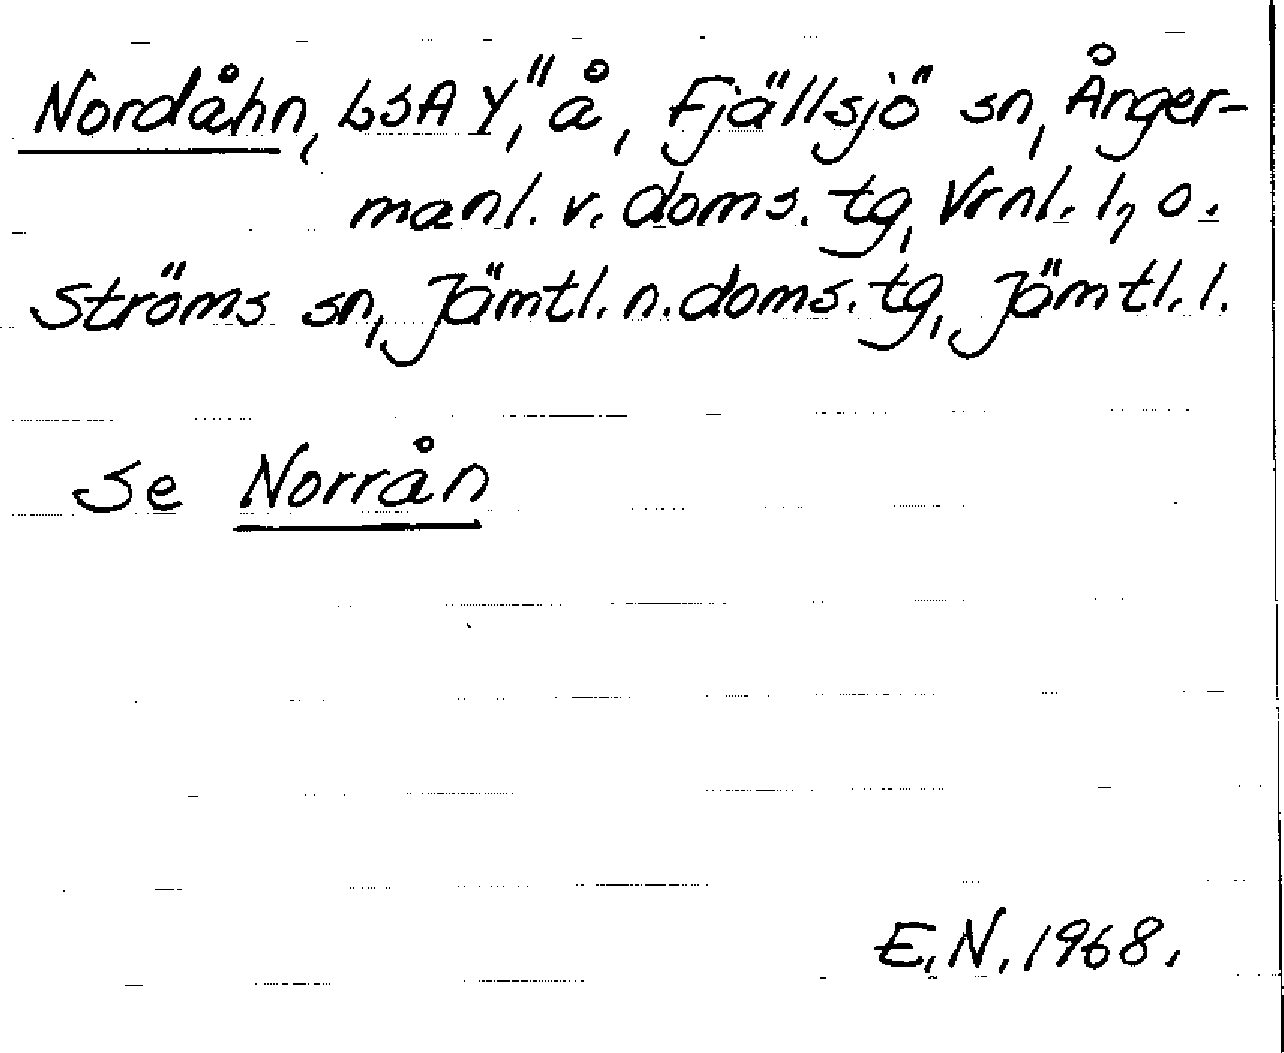 Nordåhn, LSA Y,11 å, Fjällsjö sn, Ånger-
manl. v. doms. tg, Vrnl. l, o.
Ströms sn, Jämtl. n. doms. tg, Jämtl. l.
Se Norrån
E.N. 1968.